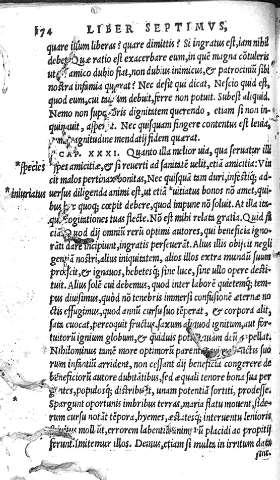 874 LIBER SEPTIMVS,
quare illum liberas? quare dimittis? Si ingratus est, iam nihil
debet. Quæ ratio est exacerbare eum, in quē magna cōtuleris
ut amico dubio fiat, non dubius inimicus, & patrociniū sibi
nostra infamia quærat? Nec desit qui dicat, Nescio quid est,
quod eum, cui debuit, ferre non potuit. Subest aliquid.
Nemo non superioris dignitatem querendo, etiam si non in-
quinauit, aspersit. Nec quisquam fingere contentus est leuia,
magnitudine mendacij fidem quærat.
CAP. XXXI. Quanto illa melior uia, qua seruatur illi
species species amicitiæ, & si reuerti ad sanitatē uelit, etiā amicitia: Vin
cit malos pertinax bonitas, Nec quisquā tam duri, infestiq; ad-
iniuriatus uersus diligenda animi est, ut etiā uitiatus bonos nō amet, quibus
quoq; cœpit debere, quod impune nō soluat. At illa
cogitationes tuas flecte. Nō est mihi relata gratia. Quid
Quod dij omniū rerū optimi autores, qui beneficia igno-
rāti dare incipiunt, ingratis perseuerāt. Alius illis obijcit negli
gentiā nostri, alius iniquitatem, alios illos extra mundū suum
proijcit, & ignauos, hebetesq; sine luce, sine ullo opere desti-
tuit. Alius solē cui debemus, quod inter laborē quietemq; tem-
pus diuisimus, quòd nō tenebris immersi confusionē æternæ no
ctis effugimus, quod annū cursu suo tēperat, & corpora alit,
sata euocat, percoquit fructus, saxum aliquod ignitum, aut for-
tuitorū ignium globum, & quiduis potius quàm deū appellat.
Nihilominus tunē more optimorū parentū suo-
rum infantiū arrident, non cessant dij beneficia congerere de
beneficiorū autore dubitātibus, sed æquali tenore bona sua per
gentes, populosq; distribuūt, unam potentiā sortiti, prodesse.
Spargunt oportunis imbribus terras, maria flatu mouent, side-
rum cursu notāt tēpora, hyemes, æstatesq; interuentu lenioris
spiritus molliūt, errorem labentiū animorū placidi ac propitij
ferunt. Imitemur illos. Demus, etiam si multa in irritum data
sint.